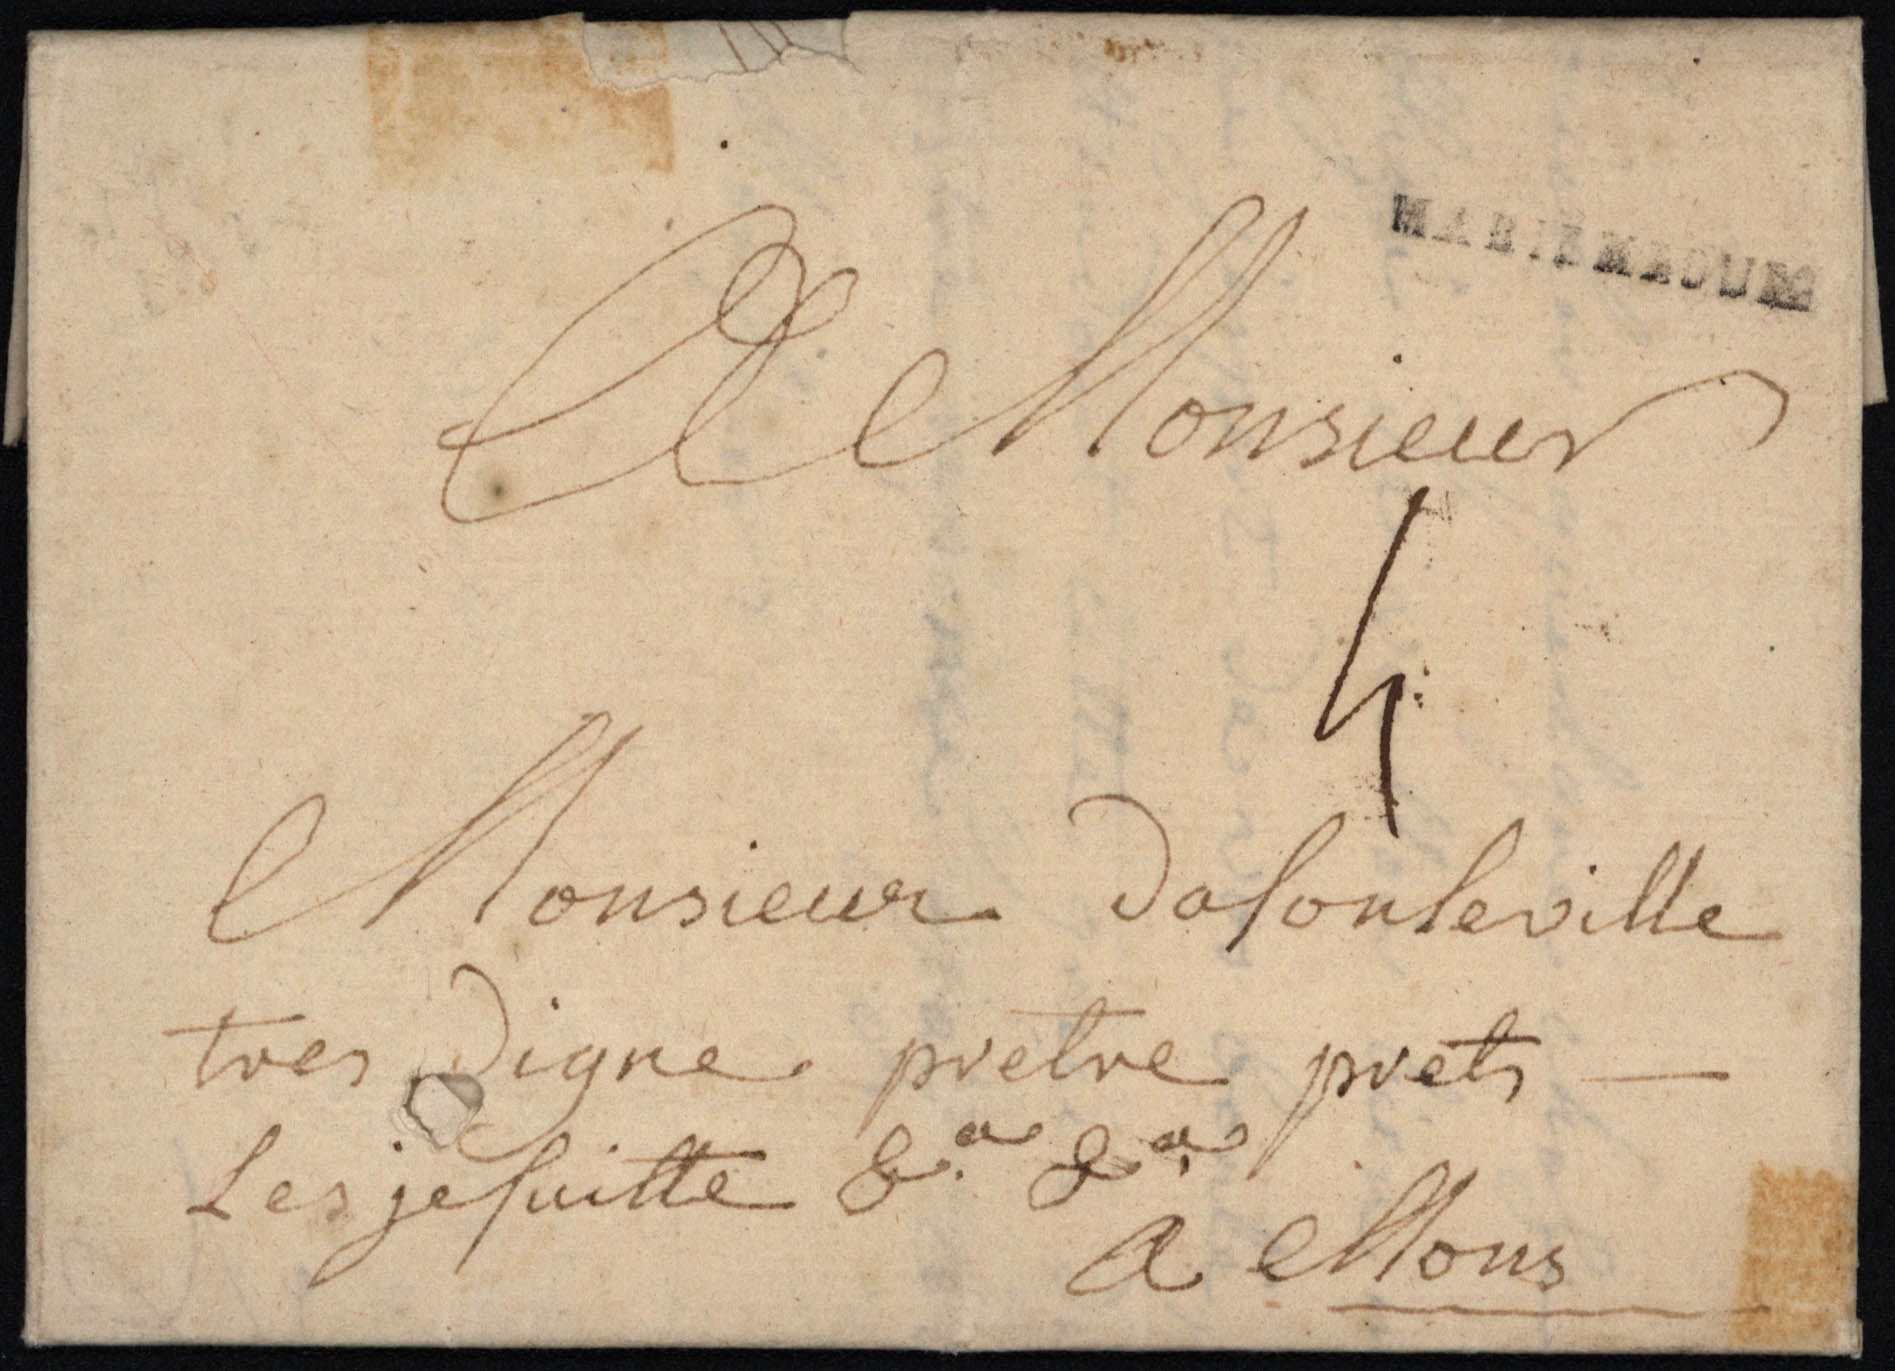 MARIENBOURG
A Monsieur
4
Monsieur Dasonleville
tres digne pretre prets —
Les jesuitte &a. &a.
a Mons